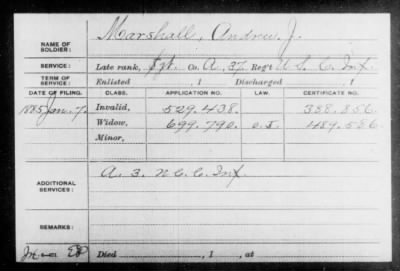 NAME OF SOLDIER: Marshall, Andrew J.
SERVICE: Late rank, Sgt. Co. A, 37, Reg't U. S. C. Inf.
TERM OF SERVICE: Enlisted , 1 Discharged , 1
DATE OF FILING. CLASS. APPLICATION NO. LAW. CERTIFICATE NO.
1885 Jan. 7. Invalid, 529.438. 388.856.
Widow, 699.790. 489.586.
Minor,
ADDITIONAL SERVICES: A. 3. N C. C. Inf.
REMARKS:
Died , 1 , at